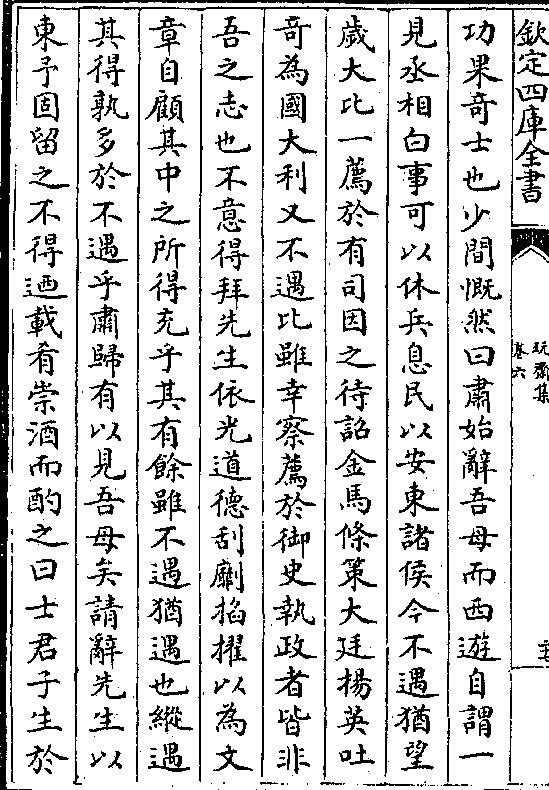 欽定四庫全書
玩齋集
卷六
功果奇士也少間慨然曰肅始辭吾母而西遊自謂一
見丞相白事可以休兵息民以安東諸侯今不遇猶望
歲大比一薦於有司因之待詔金馬條策大廷揚英吐
奇為國大利又不遇比雖幸察薦於御史執政者皆非
吾之志也不意得拜先生依光道德刮劘掐擢以為文
章自顧其中之所得充乎其有餘雖不遇猶遇也縱遇
其得孰多於不遇乎肅歸有以見吾母矣請辭先生以
東予固留之不得迺載肴崇酒而酌之曰士君子生於